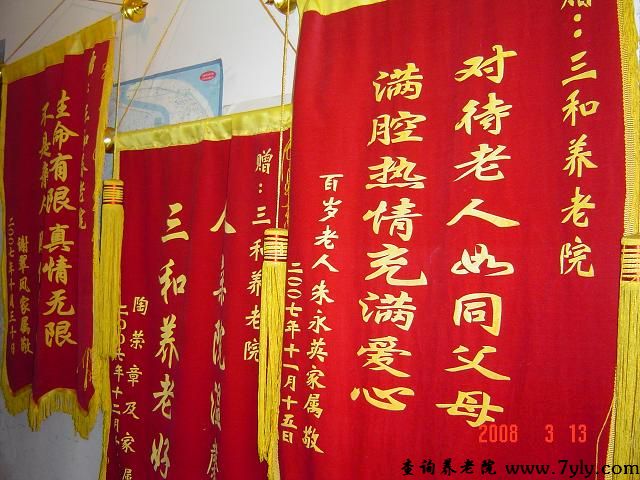 赠：三和养老院
对待老人如同父母
满腔热情充满爱心
百岁老人朱永英家属敬
二〇〇七年十一月十五日
赠：三和养老院
三和养老好
陶荣章及家属
赠：三和养老院
生命有限真情无限
不是
谢军凤家属敬
2008 3 13
查询养老院 www.7yly.com